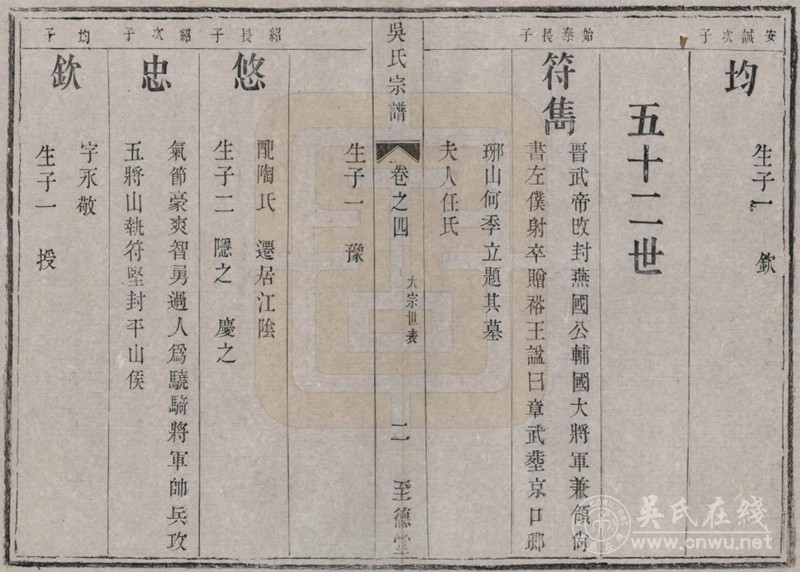 安誠次子
均
生子一 欽
五十二世
始泰長子
符雋
晋武帝改封燕國公輔國大將軍兼領尙
書左僕射卒贈裕王謚曰章武塟京口瑯
琊山何季立題其墓
夫人任氏
生子一 豫
吳氏宗譜
卷之四
大宗世表
二
至德堂
紹長子
悠
配陶氏 遷居江陰
生子二 隱之 慶之
紹次子
忠
氣節豪爽智勇過人爲驍騎將軍帥兵攻
五將山執符堅封平山侯
均子
欽
字永敬
生子一 授
吳氏在线
www.cnwu.net